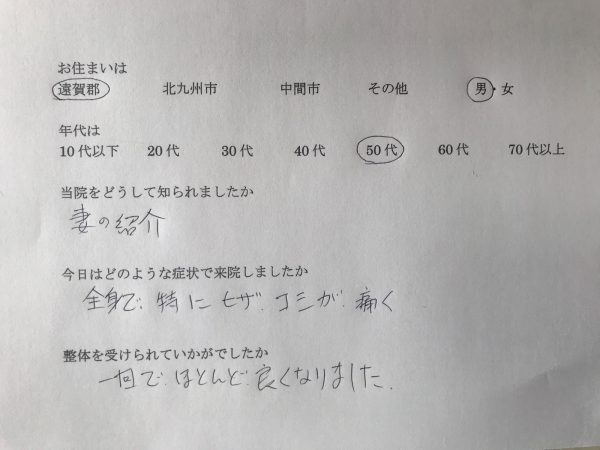 お住まいは
遠賀郡 北九州市 中間市 その他 男・女
年代は
10代以下 20代 30代 40代 50代 60代 70代以上
当院をどうして知られましたか
妻の紹介
今日はどのような症状で来院しましたか
全身で、特にヒザ、コシが、痛く
整体を受けられていかがでしたか
一回で、ほとんど良くなりました。